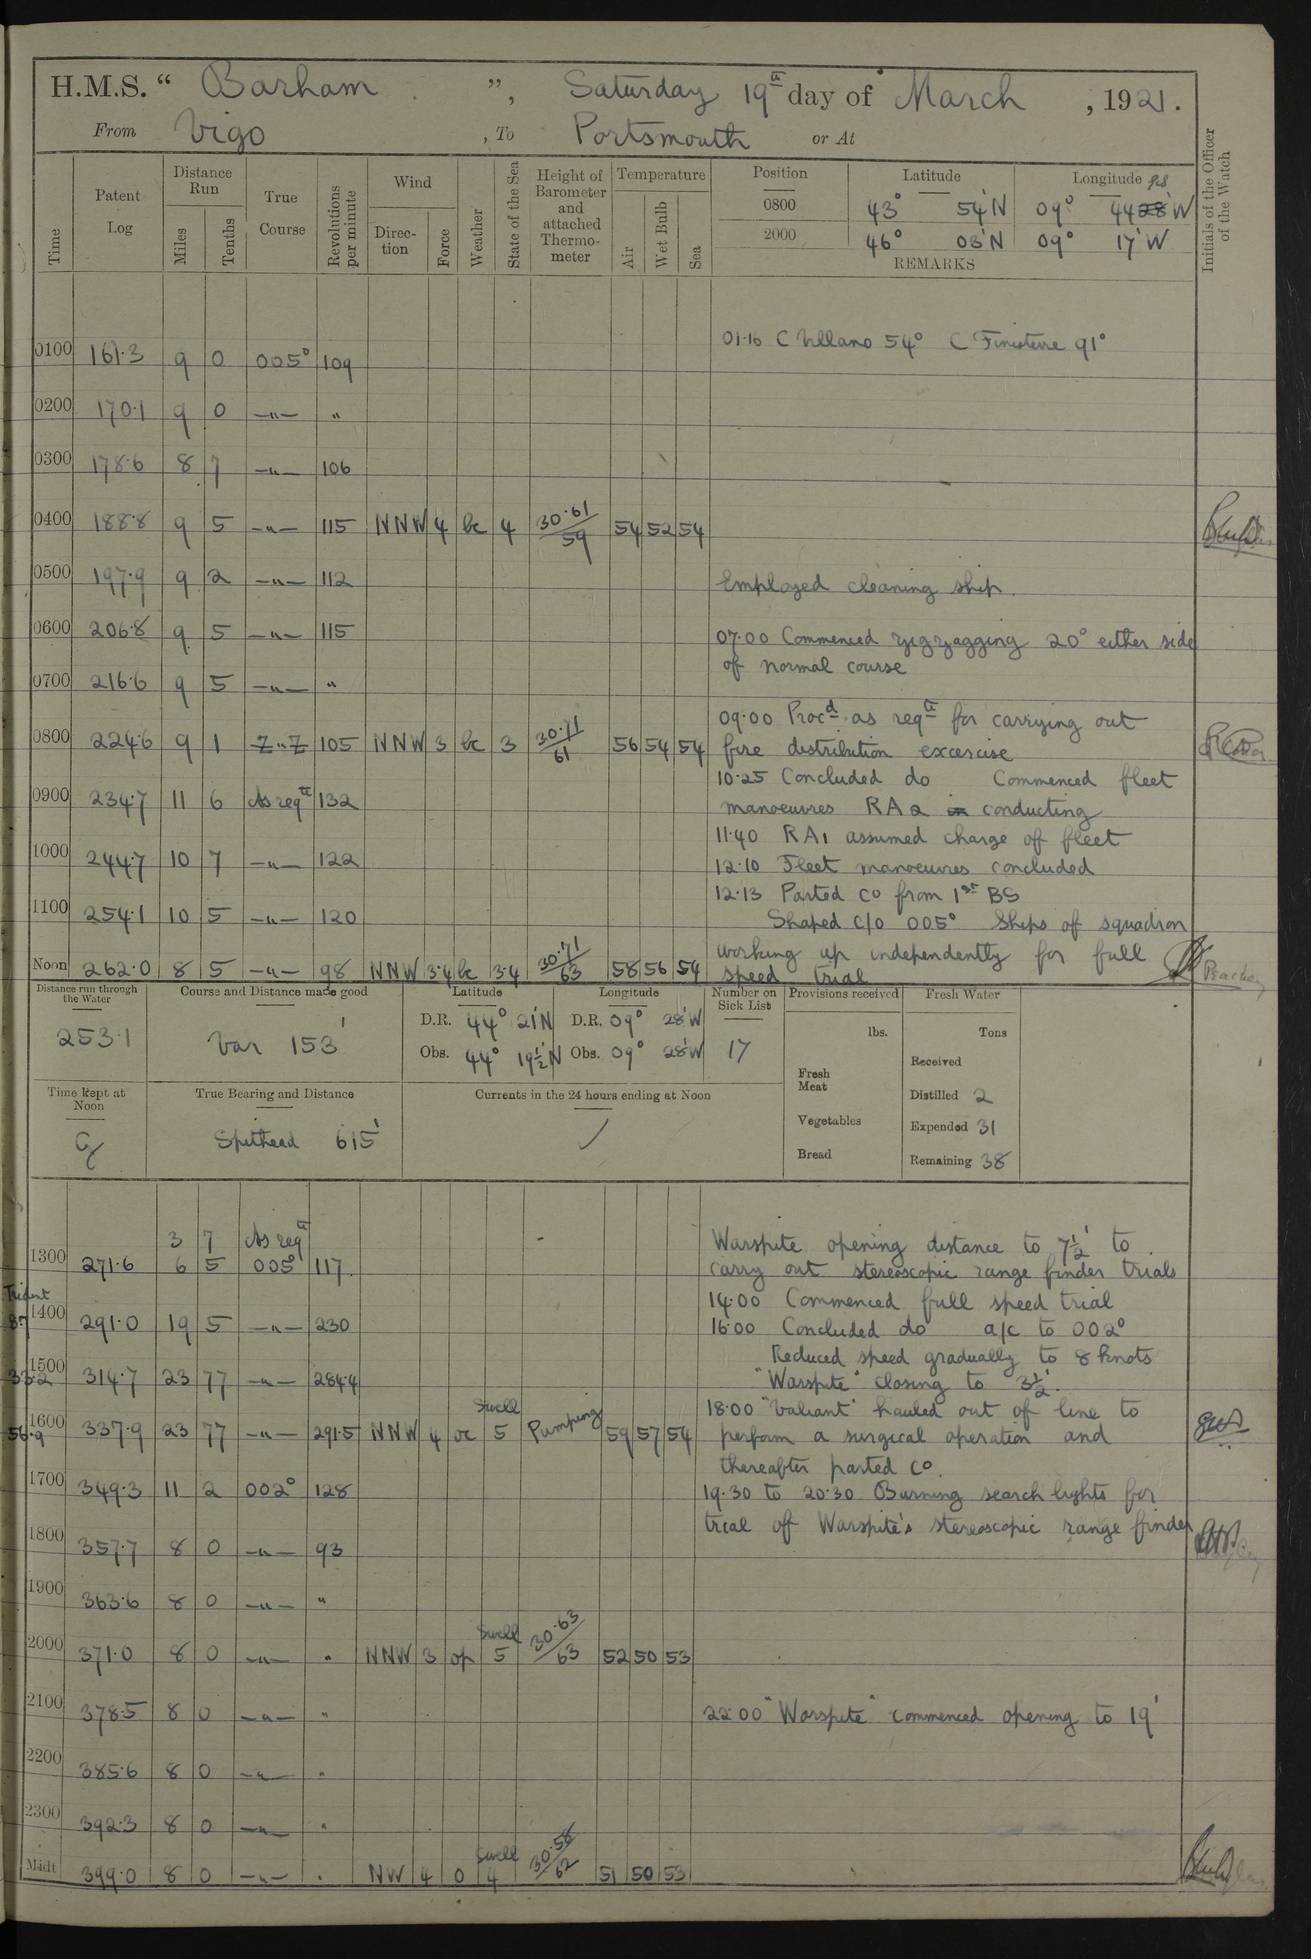 H.M.S. “ Barham ”, Saturday 19th day of March , 1921.
From Vigo , To Portsmouth or At
Time
Patent Log
Distance Run
Miles
Tenths
True Course
Revolutions per minute
Wind
Direction
Force
Weather
State of the Sea
Height of Barometer and attached Thermometer
Temperature
Air
Wet Bulb
Sea
Position
Latitude
Longitude
Initials of the Officer of the Watch
0800 43° 54' N 09° 44 28' W
2000 46° 03' N 09° 17' W
REMARKS
01·10 C Villano 54° C Finisterre 91°
0100 161·3 9 0 005° 109
0200 170·1 9 0 —"— "
0300 178·6 8 7 —"— 106
0400 188·8 9 5 —"— 115 NNW 4 bc 4 30·61/59 54 52 54
0500 197·9 9 2 —"— 112
Employed cleaning ship.
0600 206·8 9 5 —"— 115
07·00 Commenced zigzagging 20° either side
of normal course
0700 216·6 9 5 —"— "
09·00 Procd. as reqte for carrying out
0800 224·6 9 1 Z"Z 105 NNW 3 bc 3 30·71/61 56 54 54
fire distribution excercise
10·25 Concluded do Commenced fleet
0900 234·7 11 6 As reqte 132
manoeuvres RA2 conducting
11·40 RA1 assumed charge of fleet
1000 244·7 10 7 —"— 122
12·10 Fleet manoeuvres concluded
12·13 Parted Co from 1st BS
1100 254·1 10 5 —"— 120
Shaped C/o 005° Ships of squadron
working up independently for full
Noon 262·0 8 5 —"— 98 NNW 3·4 bc 34 30·71/63 58 56 54
speed trial
Distance run through the Water
253·1
Course and Distance made good
Var 153'
Latitude
D.R. 44° 21' N
Obs. 44° 19½' N
Longitude
D.R. 09° 28' W
Obs. 09° 28' W
Number on Sick List
17
Provisions received
lbs.
Fresh Meat
Vegetables
Bread
Fresh Water
Tons
Received
Distilled 2
Expended 31
Remaining 38
Time kept at Noon
G
True Bearing and Distance
Spithead 615'
Currents in the 24 hours ending at Noon
3 7 As reqte
1300 271·6 6 5 005° 117
Warspite opening distance to 7½' to
carry out stereoscopic range finder trials
Trident
14·00 Commenced full speed trial
8·7 1400 291·0 19 5 —"— 230
16·00 Concluded do a/c to 002°
Reduced speed gradually to 8 knots
33·2 1500 314·7 23 77 —"— 284·4
"Warspite" closing to 3½'.
18·00 "Valiant" hauled out of line to
56·9 1600 337·9 23 77 —"— 291·5 NNW 4 oc Swell 5 Pumping 59 57 54
perform a surgical operation and
thereafter parted Co.
1700 349·3 11 2 002° 128
19·30 to 20·30 Burning search lights for
trial of Warspite's stereoscopic range finder
1800 357·7 8 0 —"— 93
1900 363·6 8 0 —"— "
2000 371·0 8 0 —"— " NNW 3 op Swell 5 30·63/63 52 50 53
2100 378·5 8 0 —"— "
22·00 "Warspite" commenced opening to 19'
2200 385·6 8 0 —"— "
2300 392·3 8 0 —"— "
Midt 399·0 8 0 —"— " NW 4 o Swell 4 30·58/62 51 50 53